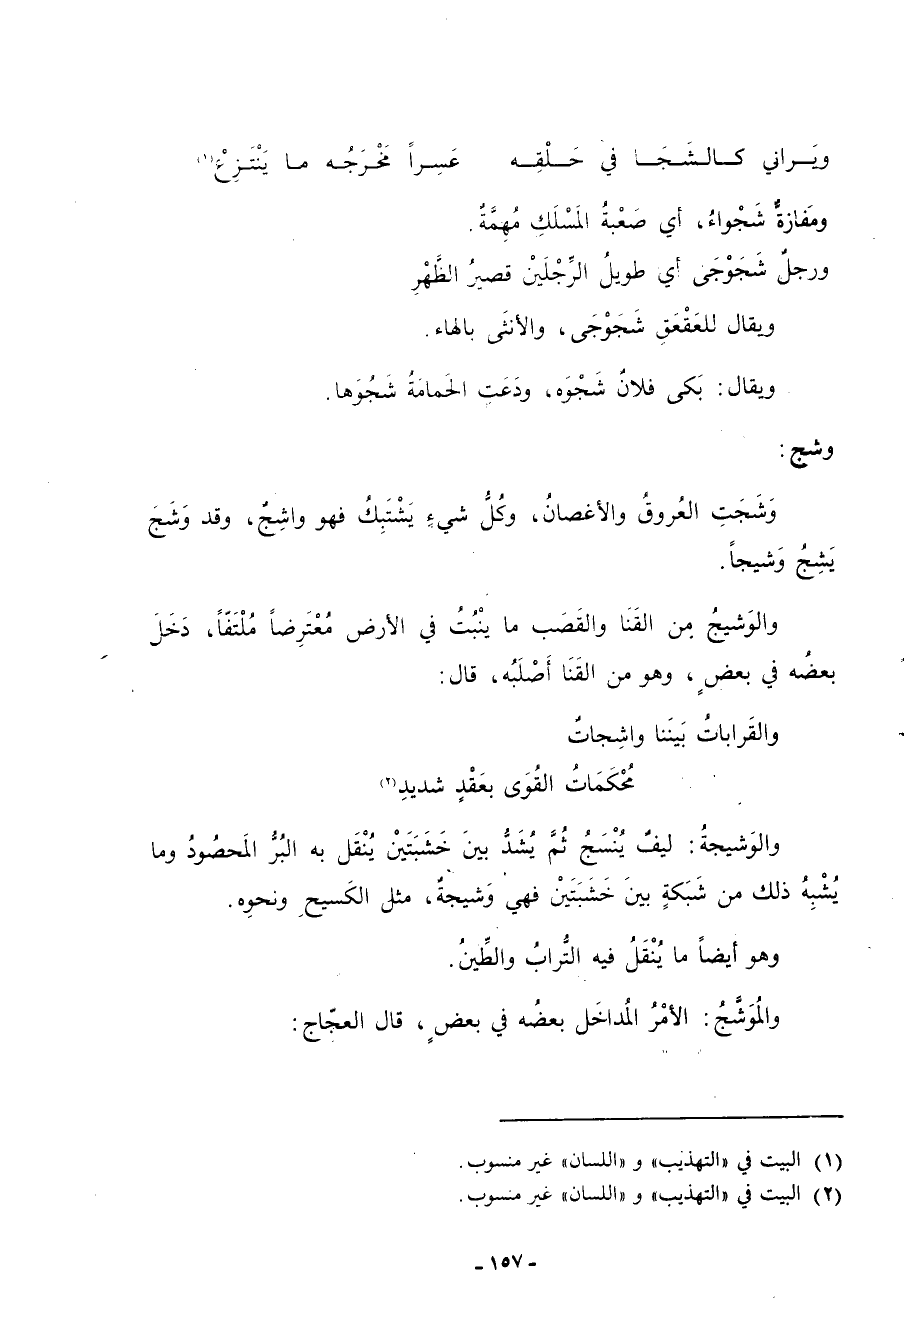 ويَـراني كـالـشَـجَـا في حَـلْـقِـه عَـسِـراً مَخْـرَجُـه مـا يَنْتَـزِعْ(١)
ومَفازةٌ شَجْواءُ، أي صَعْبةُ المَسْلَكِ مُهِمَّةٌ.
ورجلٌ شَجَوْجَى أي طويلُ الرِّجْلَيْنْ قصيرُ الظَّهْرِ
ويقال للعَقْعَقِ شَجَوْجَى، والأنثَى بالهاء.
ويقال: بَكى فلانٌ شَجْوَه، ودَعَتِ الحَمامَةُ شَجُوَها.
وشج:
وَشَجَتِ العُروقُ والأغصانُ، وكُلُّ شيءٍ يَشْتَبِكُ فهو واشِجٌ، وقد وَشَجَ
يَشِجُ وَشيجاً.
والوَشيجُ مِن القَنَا والقَصَب ما ينْبُتُ في الأرض مُعْتَرِضاً مُلْتَفّاً، دَخَلَ
بعضُه في بعضٍ، وهو من القَنَا أَصْلَبُه، قال:
والقَراباتُ بَيَننا واشِجاتٌ
مُحْكَمَاتُ القُوَى بعَقْدٍ شديدِ(٢)
والوَشيجةُ: ليفٌ يُنْسَجُ ثُمَّ يُشَدُّ بينَ خَشَبَتَيْنْ يُنْقَل به البُرُّ المَحصُودُ وما
يُشْبِهُ ذلك من شَبَكةٍ بينَ خَشَبَتَيْنْ فهي وَشيجةٌ، مثل الكَسيحِ ونحوِه.
وهو أيضاً ما يُنْقَلُ فيه التُّرابُ والطِّينُ.
والمُوَشَّجُ: الأمْرُ المُداخَل بعضُه في بعضٍ، قال العجّاج:
(١) البيت في «التهذيب» و «اللسان» غير منسوب.
(٢) البيت في «التهذيب» و «اللسان» غير منسوب.
- ١٥٧ -